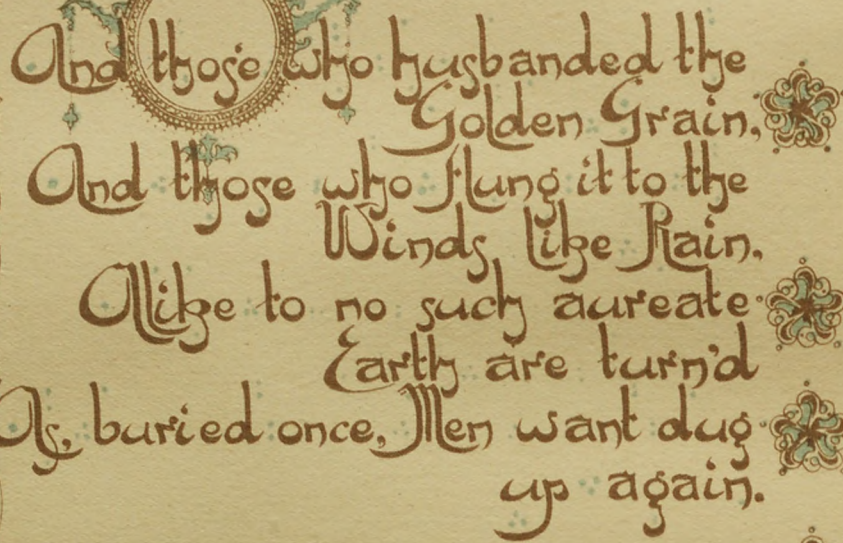 And those who husbanded the
Golden Grain,
And those who flung it to the
Winds like Rain,
Alike to no such aureate
Earth are turn'd
As, buried once, Men want dug
up again.